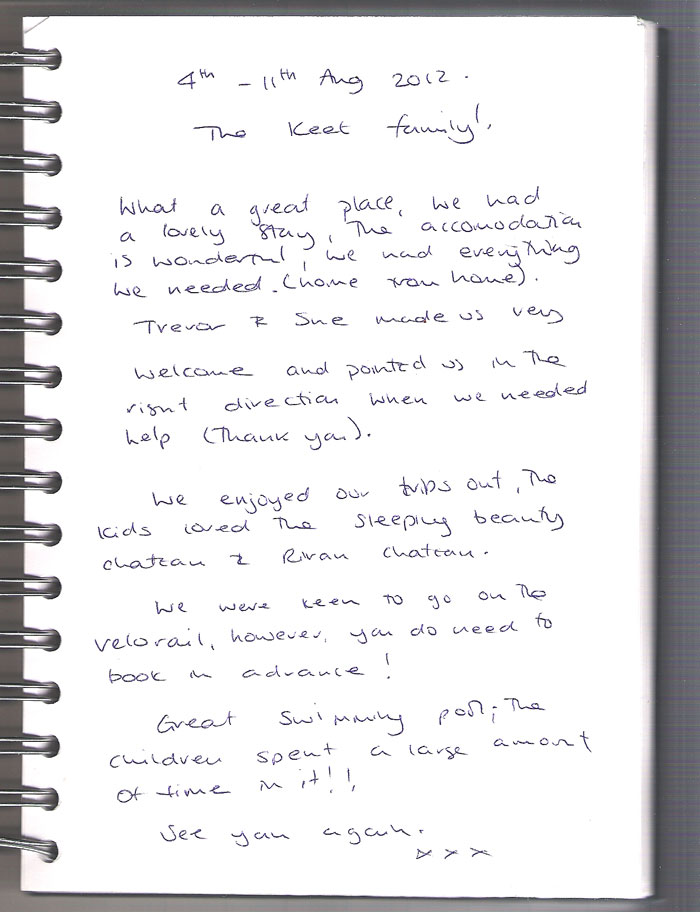 4th - 11th Aug 2012.
The Keet family!
What a great place, we had
a lovely stay, The accomodation
is wonderful, we had everything
we needed. (home from home).
Trevor & Sue made us very
welcome and pointed us in the
right direction when we needed
help (Thank you).
We enjoyed our trips out, The
kids loved The sleeping beauty
chateau & Rivau chateau.
We were keen to go on The
velorail, however, you do need to
book in advance!
Great swimming pool; The
children spent a large amont
of time in it!!
See you again.
x x x